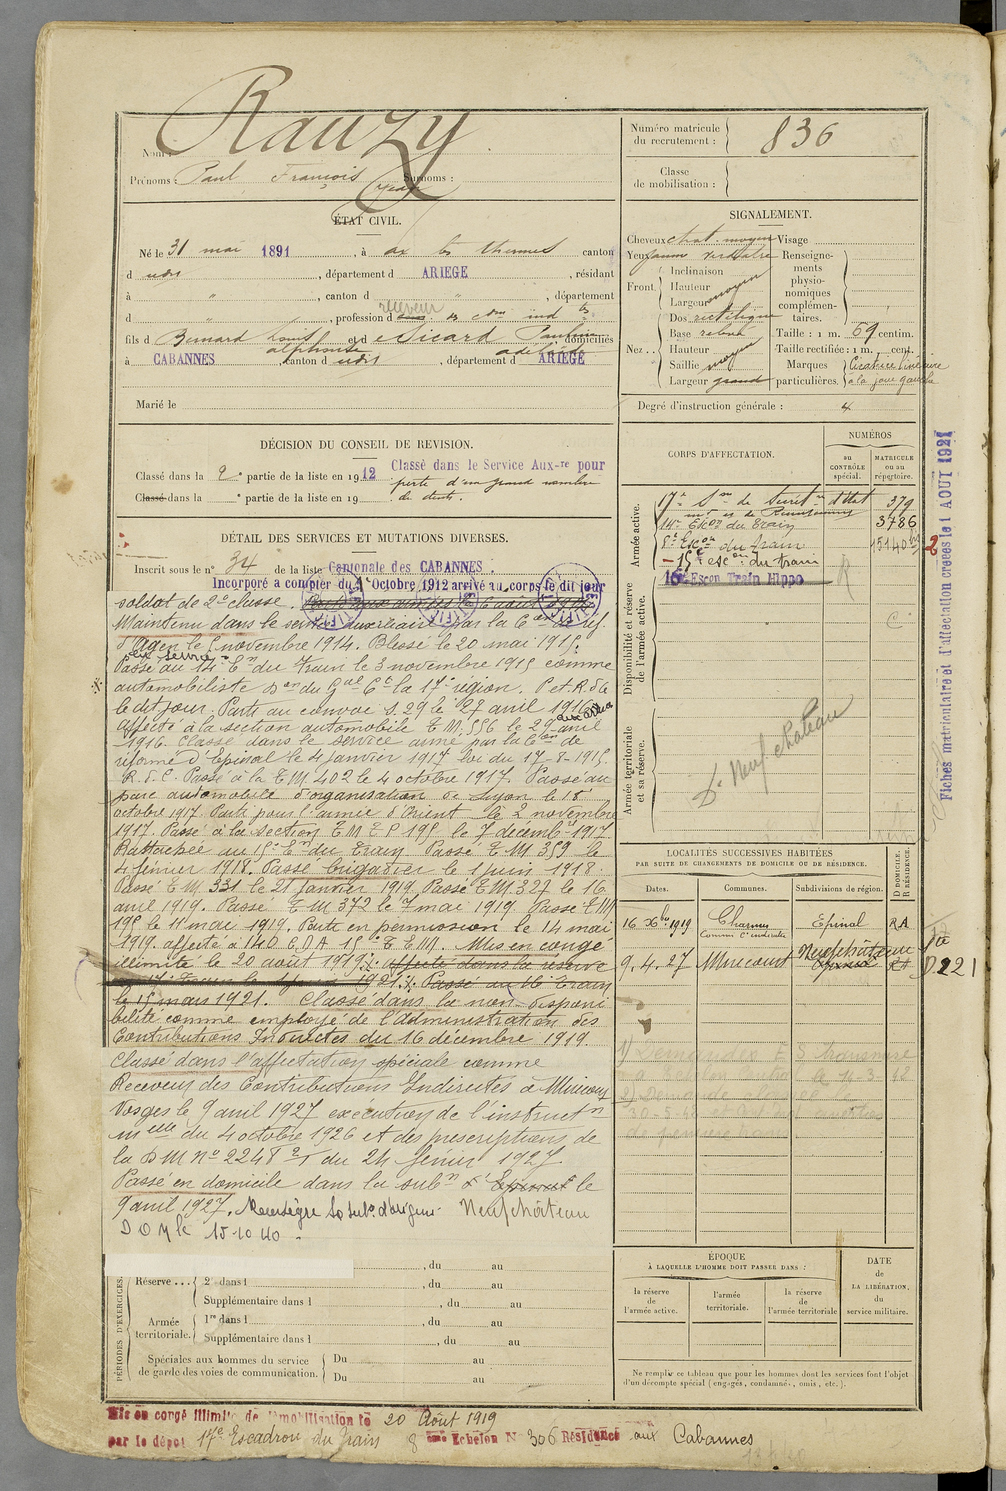 Nom : Rauzy
Prénoms : Paul François Jean Surnoms :
Numéro matricule du recrutement : 836
Classe de mobilisation :
ÉTAT CIVIL.
Né le 31 mai 1891, à ax les thermes canton
d udis, département d ARIEGE, résidant
à " , canton d " , département
d " " , profession d receveur des con ind tes
fils d Bernard Louis alphonse et d e Sicard Pauline adel domiciliés
à CABANNES, canton d udis, département d ARIEGE
Marié le
SIGNALEMENT.
Cheveux chat. moyen Visage
Yeux jaune verdatre
Front. Inclinaison
Hauteur moyen
Largeur
Nez .. Dos rectiligne
Base relevé
Hauteur moyen
Saillie
Largeur grand
Renseignements physionomiques complémentaires.
Taille : 1 m. 69 centim.
Taille rectifiée : 1 m. cent.
Marques particulières. Cicatrice linéaire à la joue gauche
Degré d'instruction générale : 4
DÉCISION DU CONSEIL DE REVISION.
Classé dans la 2e partie de la liste en 1912 Classé dans le Service Aux-re pour
perte d'un grand nombre
Classé dans la e partie de la liste en 19 de dents.
DÉTAIL DES SERVICES ET MUTATIONS DIVERSES.
Inscrit sous le n° 34 de la liste Cantonale des CABANNES.
Incorporé a compter du 1 Octobre 1912 arrivé au corps le dit jour
soldat de 2e classe.
Maintenu dans le service auxiliaire par la Con de réf.
d'Agen le 5 novembre 1914. Blessé le 20 mai 1915.
Passé au 14e Eon du Train le 3 novembre 1915 comme
automobiliste Don du Gal Ct la 17e région. P et R. d C
le dit jour. Parti au convoi S. 29 le 27 avril 1916
Affecté à la section automobile T M 556 le 29 avril
1916. Classé dans le service armé par la Con de
réforme d'Epinal le 4 janvier 1917 loi du 17-8-1915.
R. d C. Passé à la T M 402 le 4 octobre 1917. Passé au
parc automobile d'organisation de Lyon le 18
octobre 1917. Parti pour l'armée d'Orient le 2 novembre
1917. Passé à la section T M E S 195 le 7 décemb. 1917
Rattachée au 15e Eon du Train Passé T M 359 le
4 février 1918. Passé brigadier le 1 juin 1918.
Passé T M 331 le 21 janvier 1919. Passé T M 327 le 16
avril 1919. Passé T M 372 le 7 mai 1919 Passé T M
195 le 11 mai 1919. Parti en permission le 14 mai
1919. affecté à 140 C D A 15e E T E M. Mis en congé
illimité le 20 août 1919. affecté dans la réserve
Passé au 16 Train
le 15 mars 1921. Classé dans la non disponi
bilité comme employé de l'Administration des
Contributions Indirectes du 16 décembre 1919.
Classé dans l'affectation spéciale comme
Receveur des Contributions Indirectes à Mirecourt
Vosges le 9 avril 1927 exécution de l'instruct on
melle du 4 octobre 1926 et des prescriptions de
la D M n° 2248 2/1 du 24 février 1927
Passé en domicile dans la subn d' Epinal le
9 avril 1927. Neufchâteau
D O M le 15-10 40 -
CORPS D'AFFECTATION.
NUMÉROS
au CONTRÔLE spécial.
MATRICULE ou au répertoire.
Armée active.
17e Son de Secrét es d'Etat 379
14e Escon du Train 3786
8e Escon du Train
15e escon du train
16e Escon Train Hippo
Disponibilité et réserve de l'armée active.
Armée territoriale et sa réserve.
Dt Neufchateau
Fiches matriculaire et d'affectation créées le 1 AOUT 1921
LOCALITÉS SUCCESSIVES HABITÉES
PAR SUITE DE CHANGEMENTS DE DOMICILE OU DE RÉSIDENCE.
Dates. Communes. Subdivisions de région. D DOMICILE. R RÉSIDENCE.
16 Xbre 1919 Charmes Commis Ctions indirectes Epinal RA
9.4.27 Mirecourt Neufchâteau Epinal RA
PÉRIODES D'EXERCICES.
, du au
Réserve ... 2e dans l , du au
Supplémentaire dans l , du au
Armée territoriale. 1re dans l , du au
Supplémentaire dans l , du au
Spéciales aux hommes du service de garde des voies de communication. Du au
Du au
ÉPOQUE
À LAQUELLE L'HOMME DOIT PASSER DANS :
la réserve de l'armée active.
l'armée territoriale.
la réserve de l'armée territoriale
DATE de LA LIBÉRATION, du service militaire.
Ne remplir ce tableau que pour les hommes dont les services font l'objet
d'un décompte spécial (engagés, condamnés, omis, etc.).
Mis en congé illimité de démobilisation le 20 Août 1919
par le dépôt 17e Escadron du Train 8 ème Echelon N° 306 Résidence aux Cabannes